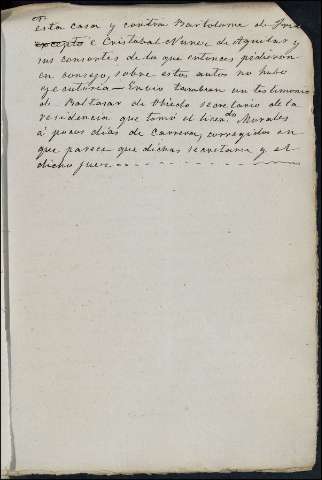 Esta casa y contra Bartolome de
excepto é Cristobal Nunez de Aguilar y
sus consortes de lo que entonces pidieron
en consejo, sobre estos autos no hubo
ejecutoria — Envio tambien un testimonio
de Baltasar de Oviedo secretario de la
residencia que tomó el licen.do Morales
á pocos dias de Carrera, corregidor en
que parece que dichos secretario y el
dicho juez